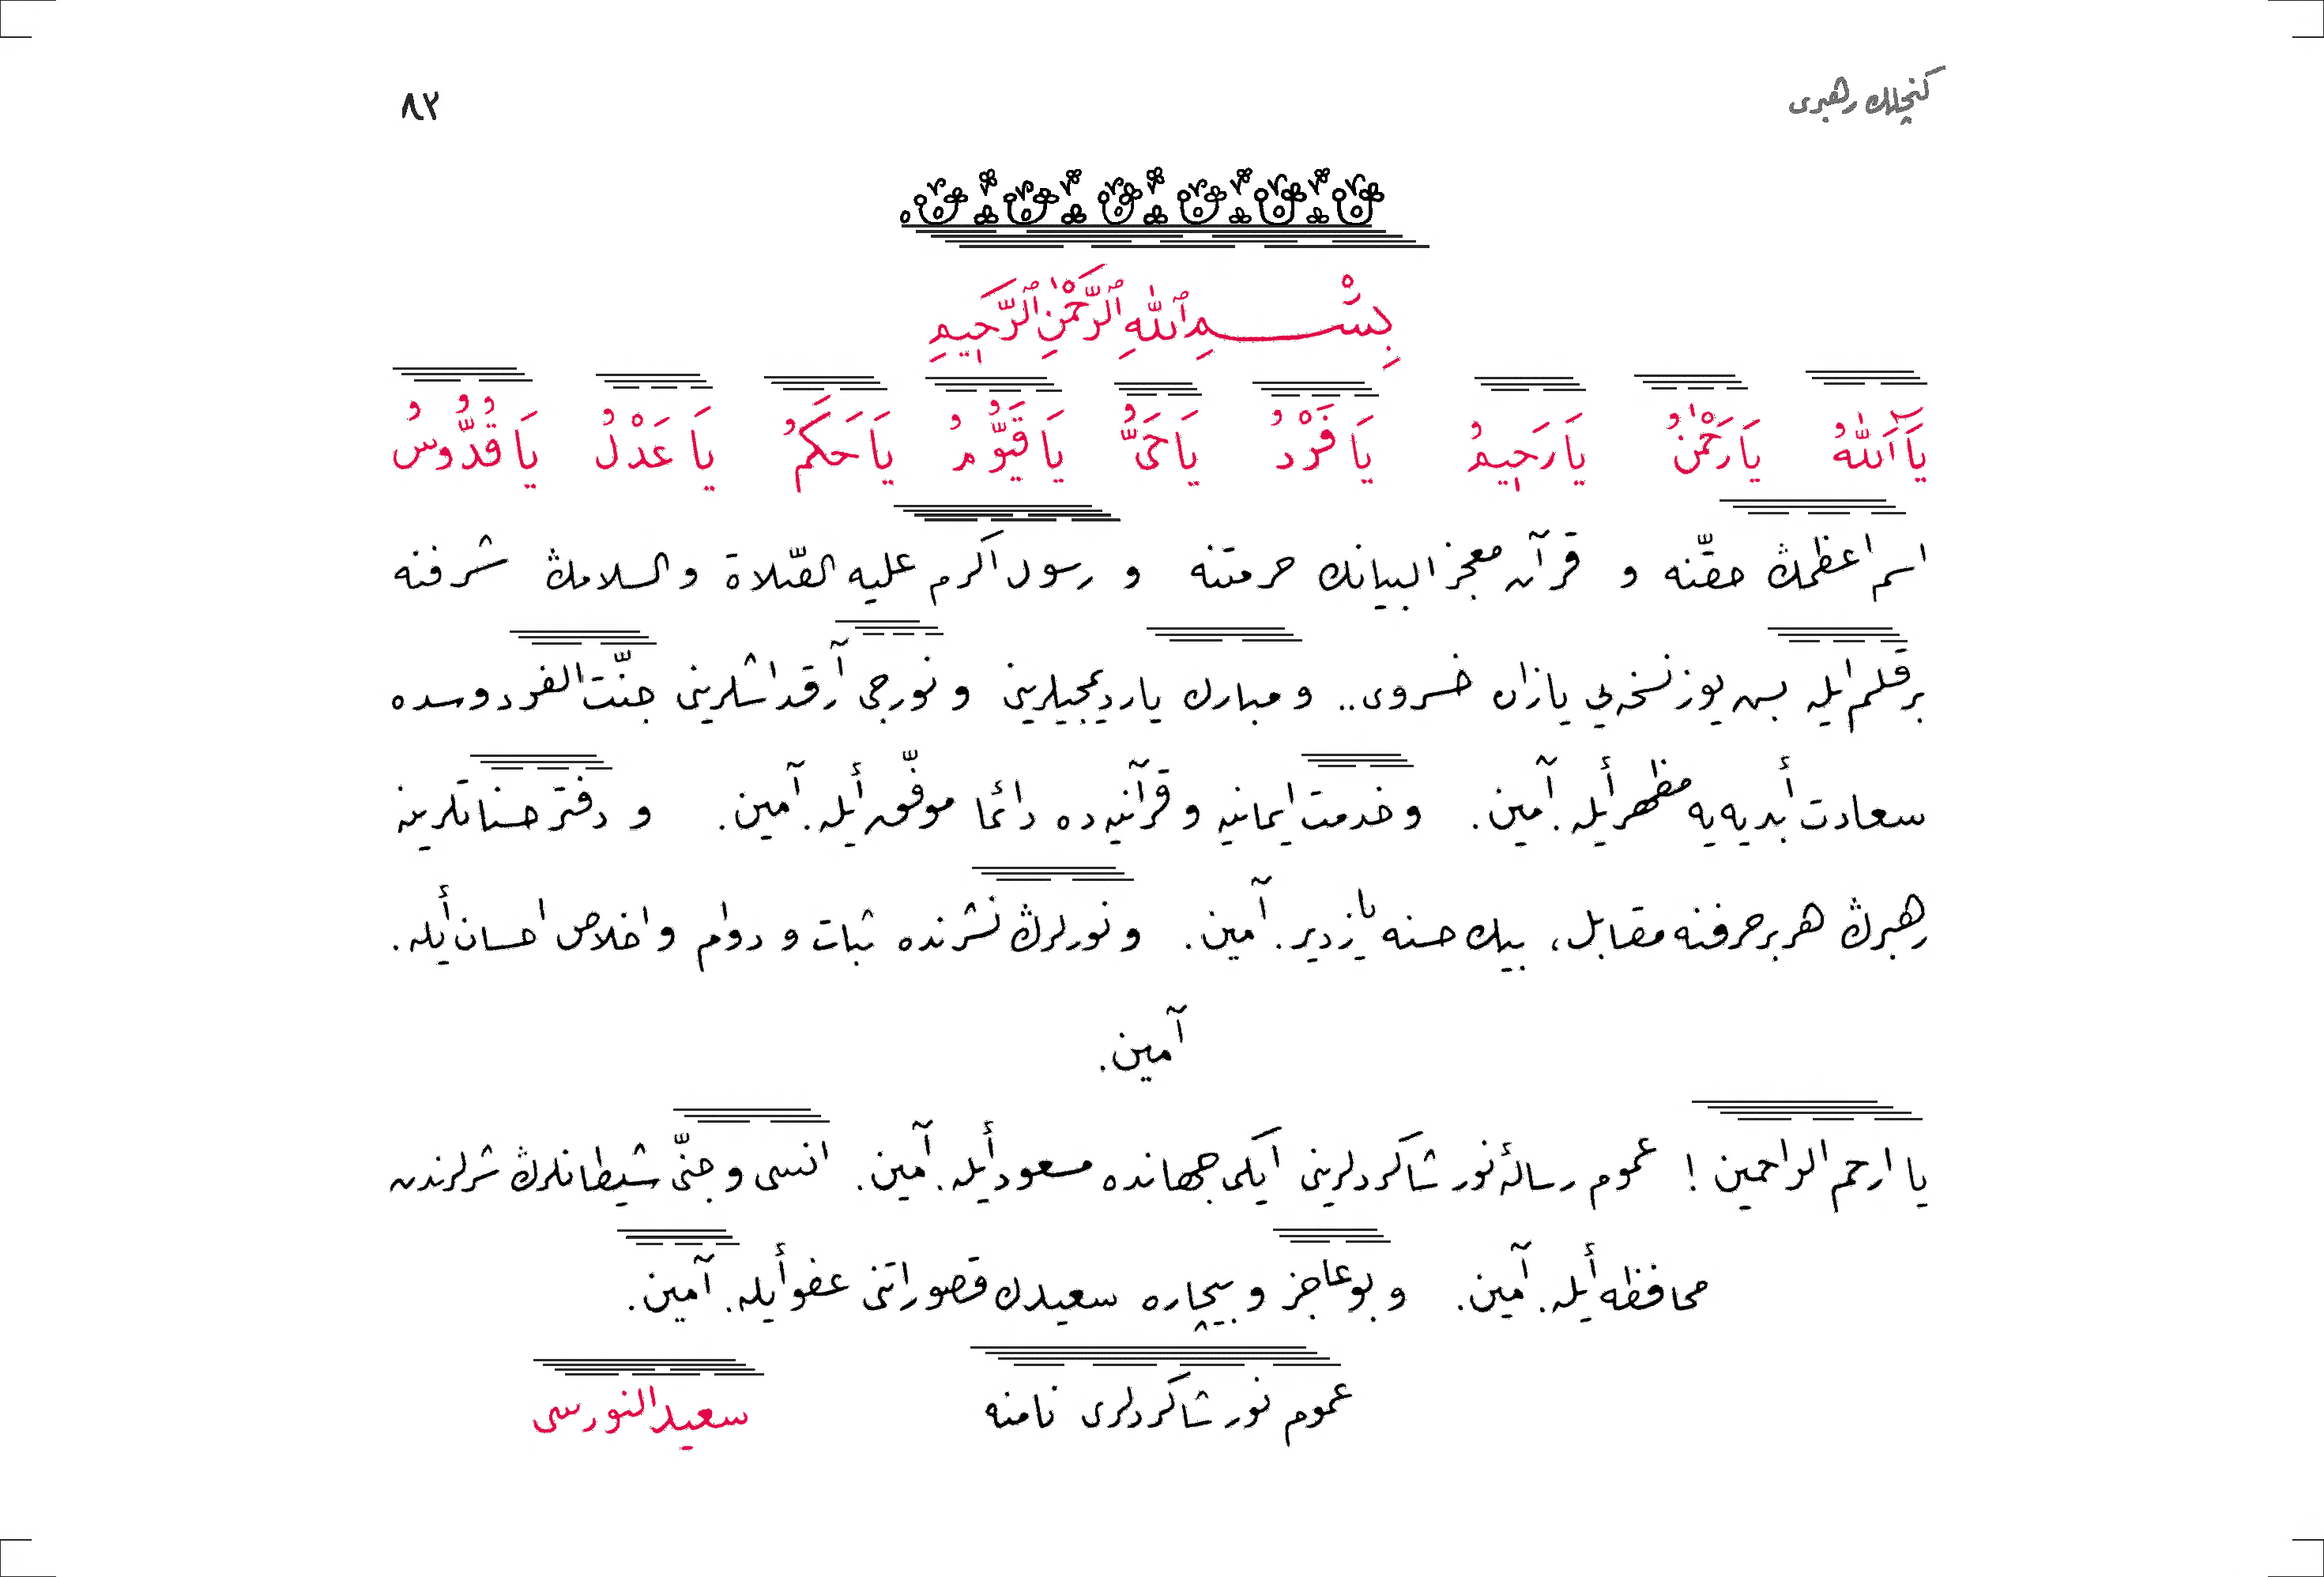 كنجلك رهبرى
٨٢
بِسْمِ ٱللّٰهِ ٱلرَّحْمٰنِ ٱلرَّحِيمِ
يَٓا اَللّٰهُ يَا رَحْمٰنُ يَا رَحِيمُ يَا فَرْدُ يَا حَىُّ يَا قَيُّومُ يَا حَكَمُ يَا عَدْلُ يَا قُدُّوسُ
اسم اعظمڭ حقّنه و قرآن معجز البيانك حرمتنه و رسول اكرم عليه الصّلاة والسلامڭ شرفنه
بر قلم ايله بش يوز نسخه يى يازان خسروى.. و مبارك يارديمجيلرينى و نورجى آرقداشلرينى جنّت الفردوسده
سعادت أبديه يه مظهر أيله. آمين. و خدمت ايمانيه و قرآنيه ده دائما موفّق أيله. آمين. و دفتر حسناتلرينه
رهبرڭ هر بر حرفنه مقابل، بيك حسنه يازدير. آمين. و نورلرڭ نشرنده ثبات و دوام و اخلاص احسان أيله.
آمين.
يا ارحم الراحمين ! عموم رسالهٔ نور شاكردلرينى ايكى جهانده مسعود أيله. آمين. انسى و جنّى شيطانلرڭ شرلرندن
محافظه أيله. آمين. و بو عاجز و بيچاره سعيدك قصوراتنى عفو أيله. آمين.
عموم نور شاكردلرى نامنه
سعيد النورسى